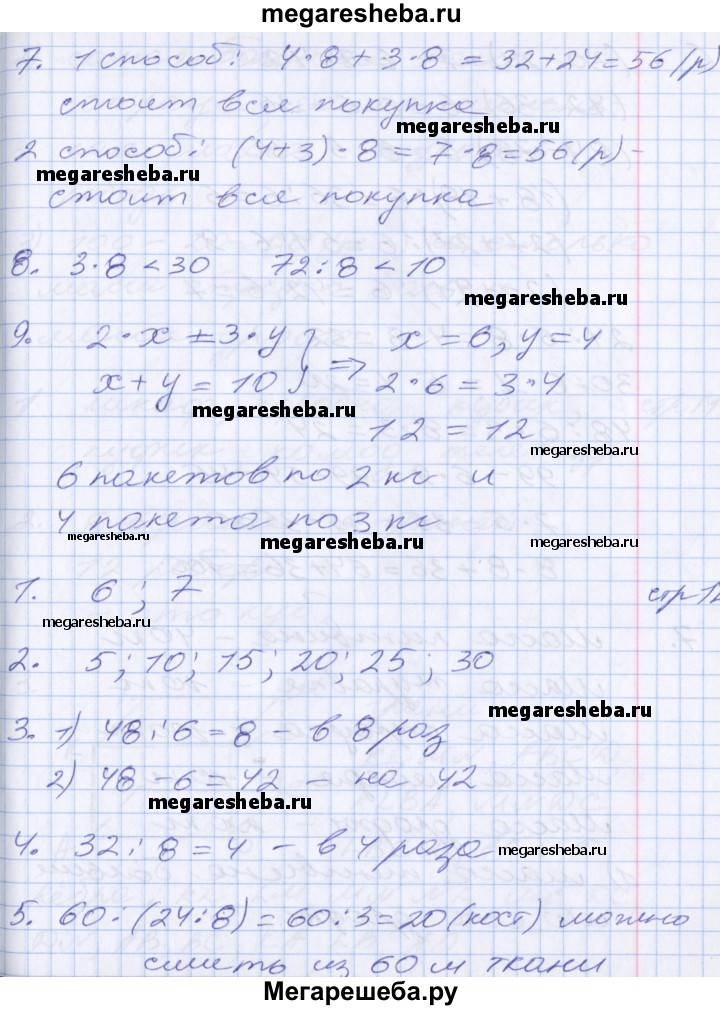 megaresheba.ru
7. 1 способ: 4·8+3·8 = 32+24=56(р)
стоит вся покупка
megaresheba.ru
2 способ: (4+3)·8=7·8=56(р)-
megaresheba.ru
стоит вся покупка
8. 3·8<30 72:8<10
megaresheba.ru
9. 2·x = 3·y } x=6, y=4
x+y=10 } ⇒ 2·6=3·4
megaresheba.ru
12=12
megaresheba.ru
6 пакетов по 2 кг и
4 пакета по 3 кг
megaresheba.ru
megaresheba.ru
1. 6; 7 стр 12
megaresheba.ru
2. 5; 10; 15; 20; 25; 30
megaresheba.ru
3. 1) 48:6=8 - в 8 раз
2) 48-6=42 - на 42
megaresheba.ru
4. 32:8=4 - в 4 раза
megaresheba.ru
5. 60:(24:8)=60:3=20(кост) можно
сшить из 60 м ткани
Мегарешеба.ру